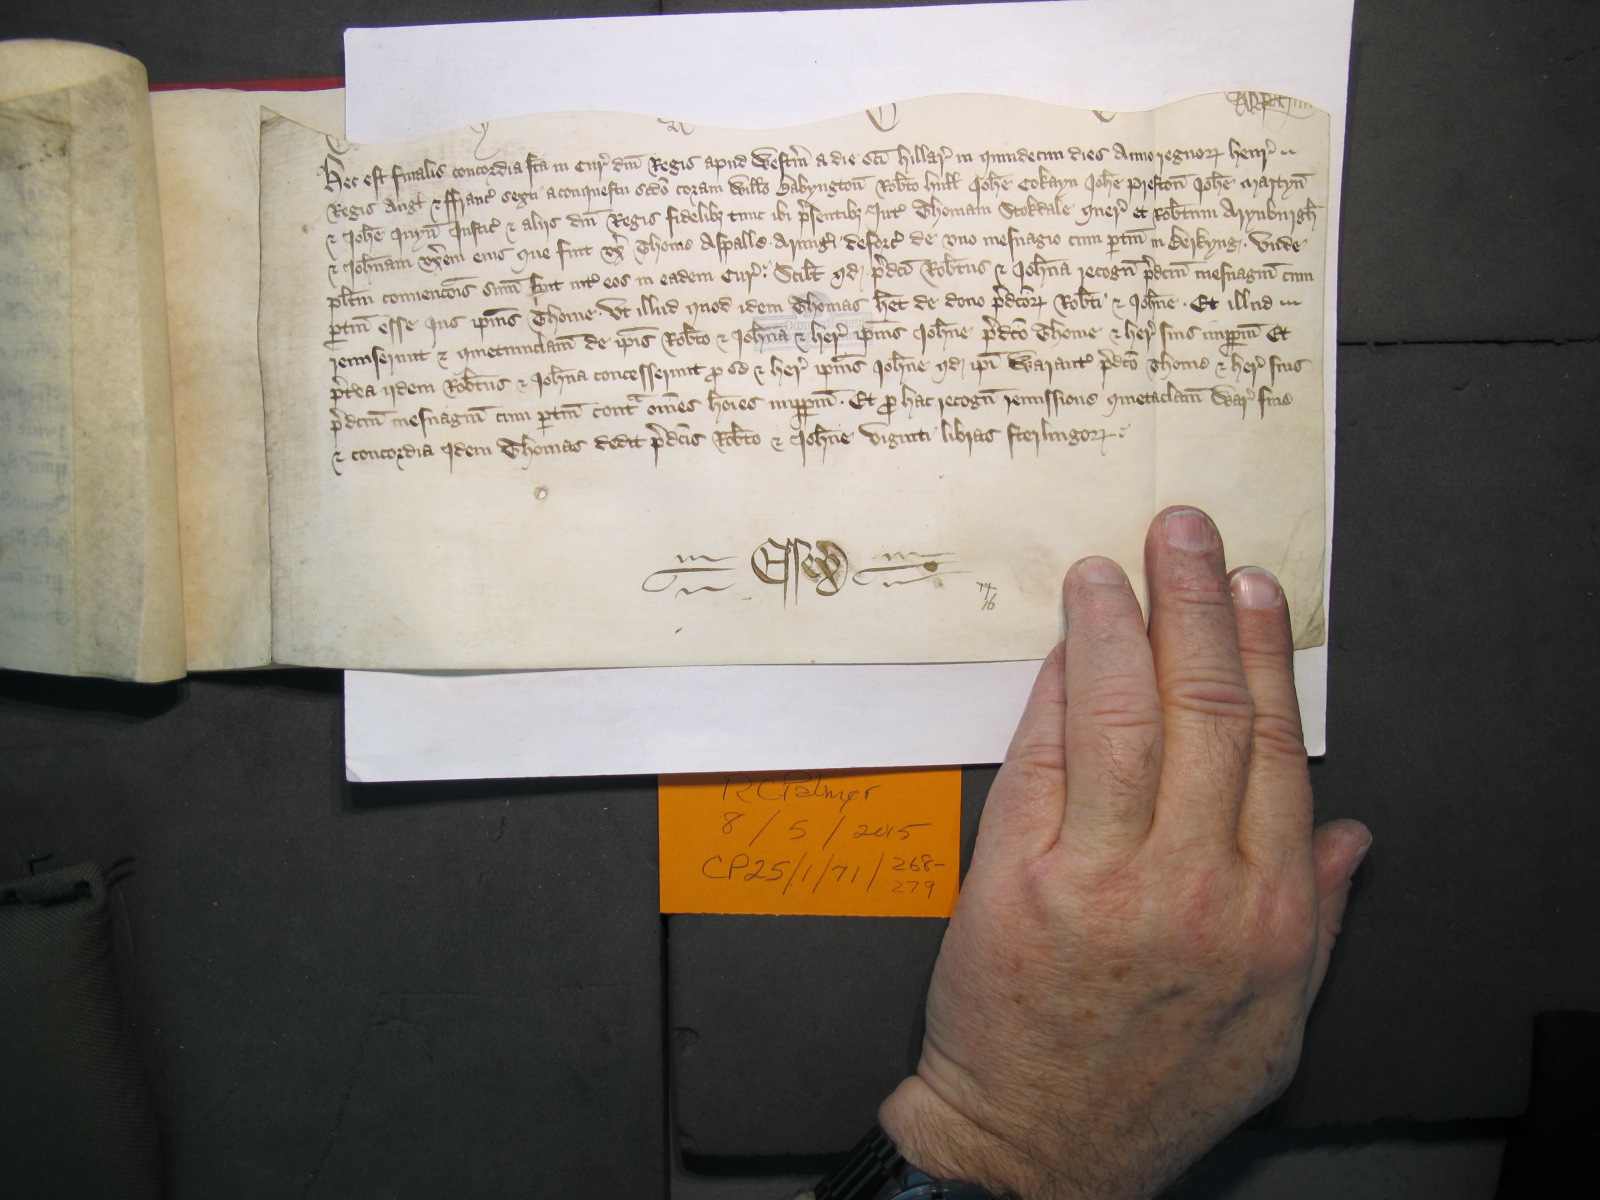 Hec est finalis concordia fca in Cur̃ dni Regis apud Westm̃ a die sci Hillar̃ in quindecim dies Anno regnor̃ Henr̃
Regis Angl & Ffranc̃ sexti a conquestu scdo coram Willo Babyngton̄ Robto Hull Johe Cokayn Johe Preston̄ Johe Martyn̄
& Johe Juyn̄ Justic̃ & alijs dni Regis fidelibȝ tunc ibi p̃sentibȝ Int̃ Thomam Stokdale quer̃ et Robtum
& Johnam vx̃em eius que fuit vx̃ Thome Aspalle Armig̃i deforc̃ de vno mesuagio cum ptin̄ in Berkyng̃ Vnde
pltm convencois sum̄ fuit int̃ eos in eadem Cur̃ Scilt qd p̃dci Robtus & Johna recogn̄ p̃dcm mesuagiū cum
ptin̄ esse Jus ipius Thome Vt illud quod idem Thomas het de dono p̃dcor̃ Robti & Johne Et illud
remiserunt & quietumclam̄ de ipis Robto & Johna & her̃ ipius Johne p̃dco Thome & her̃ suis imppm Et
p̃tea ijdem Robtus & Johna concesserunt p se & her̃ ipius Johne qd ipi Warant̃ p̃dco Thome & her̃ suis
p̃dcm mesuagiū cum ptin̄ cont̃a om̄es hoies imppm Et p hac recogn̄ remissione quietaclam̄ War̃ fine
& concordia idem Thomas dedit p̃dcis Robto & Johne viginti libras sterlingor̃
Essex
RCPalmer
8 / 5 / 2015
CP25/1/71/ 268-
279